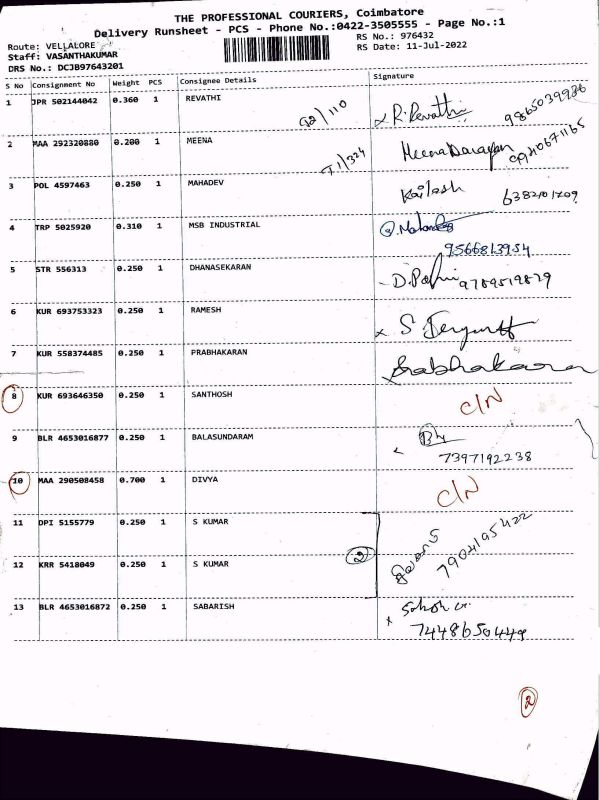 THE PROFESSIONAL COURIERS, Coimbatore
Delivery Runsheet - PCS - Phone No.:0422-3505555 - Page No.:1
Route: VELLALORE
RS No.: 976432
Staff: VASANTHAKUMAR
RS Date: 11-Jul-2022
DRS No.: DCJB97643201
S No Consignment No Weight PCS Consignee Details Signature
1 JPR 502144042 0.360 1 REVATHI 92/110 x R. Revathi 9865039936
2 MAA 292320880 0.200 1 MEENA 71/324 Meena Darayan 9940671165
3 POL 4597463 0.250 1 MAHADEV Kailash 6382101709
4 TRP 5025920 0.310 1 MSB INDUSTRIAL 9566813954
5 STR 556313 0.250 1 DHANASEKARAN 9789519879
6 KUR 693753323 0.250 1 RAMESH x S
7 KUR 558374485 0.250 1 PRABHAKARAN Prabhakaran
8 KUR 693646350 0.250 1 SANTHOSH C/N
9 BLR 4653016877 0.250 1 BALASUNDARAM 7397192238
10 MAA 290508458 0.700 1 DIVYA C/N
11 DPI 5155779 0.250 1 S KUMAR 7904195422
12 KRR 5418049 0.250 1 S KUMAR 2
13 BLR 4653016872 0.250 1 SABARISH x 7448650449
2